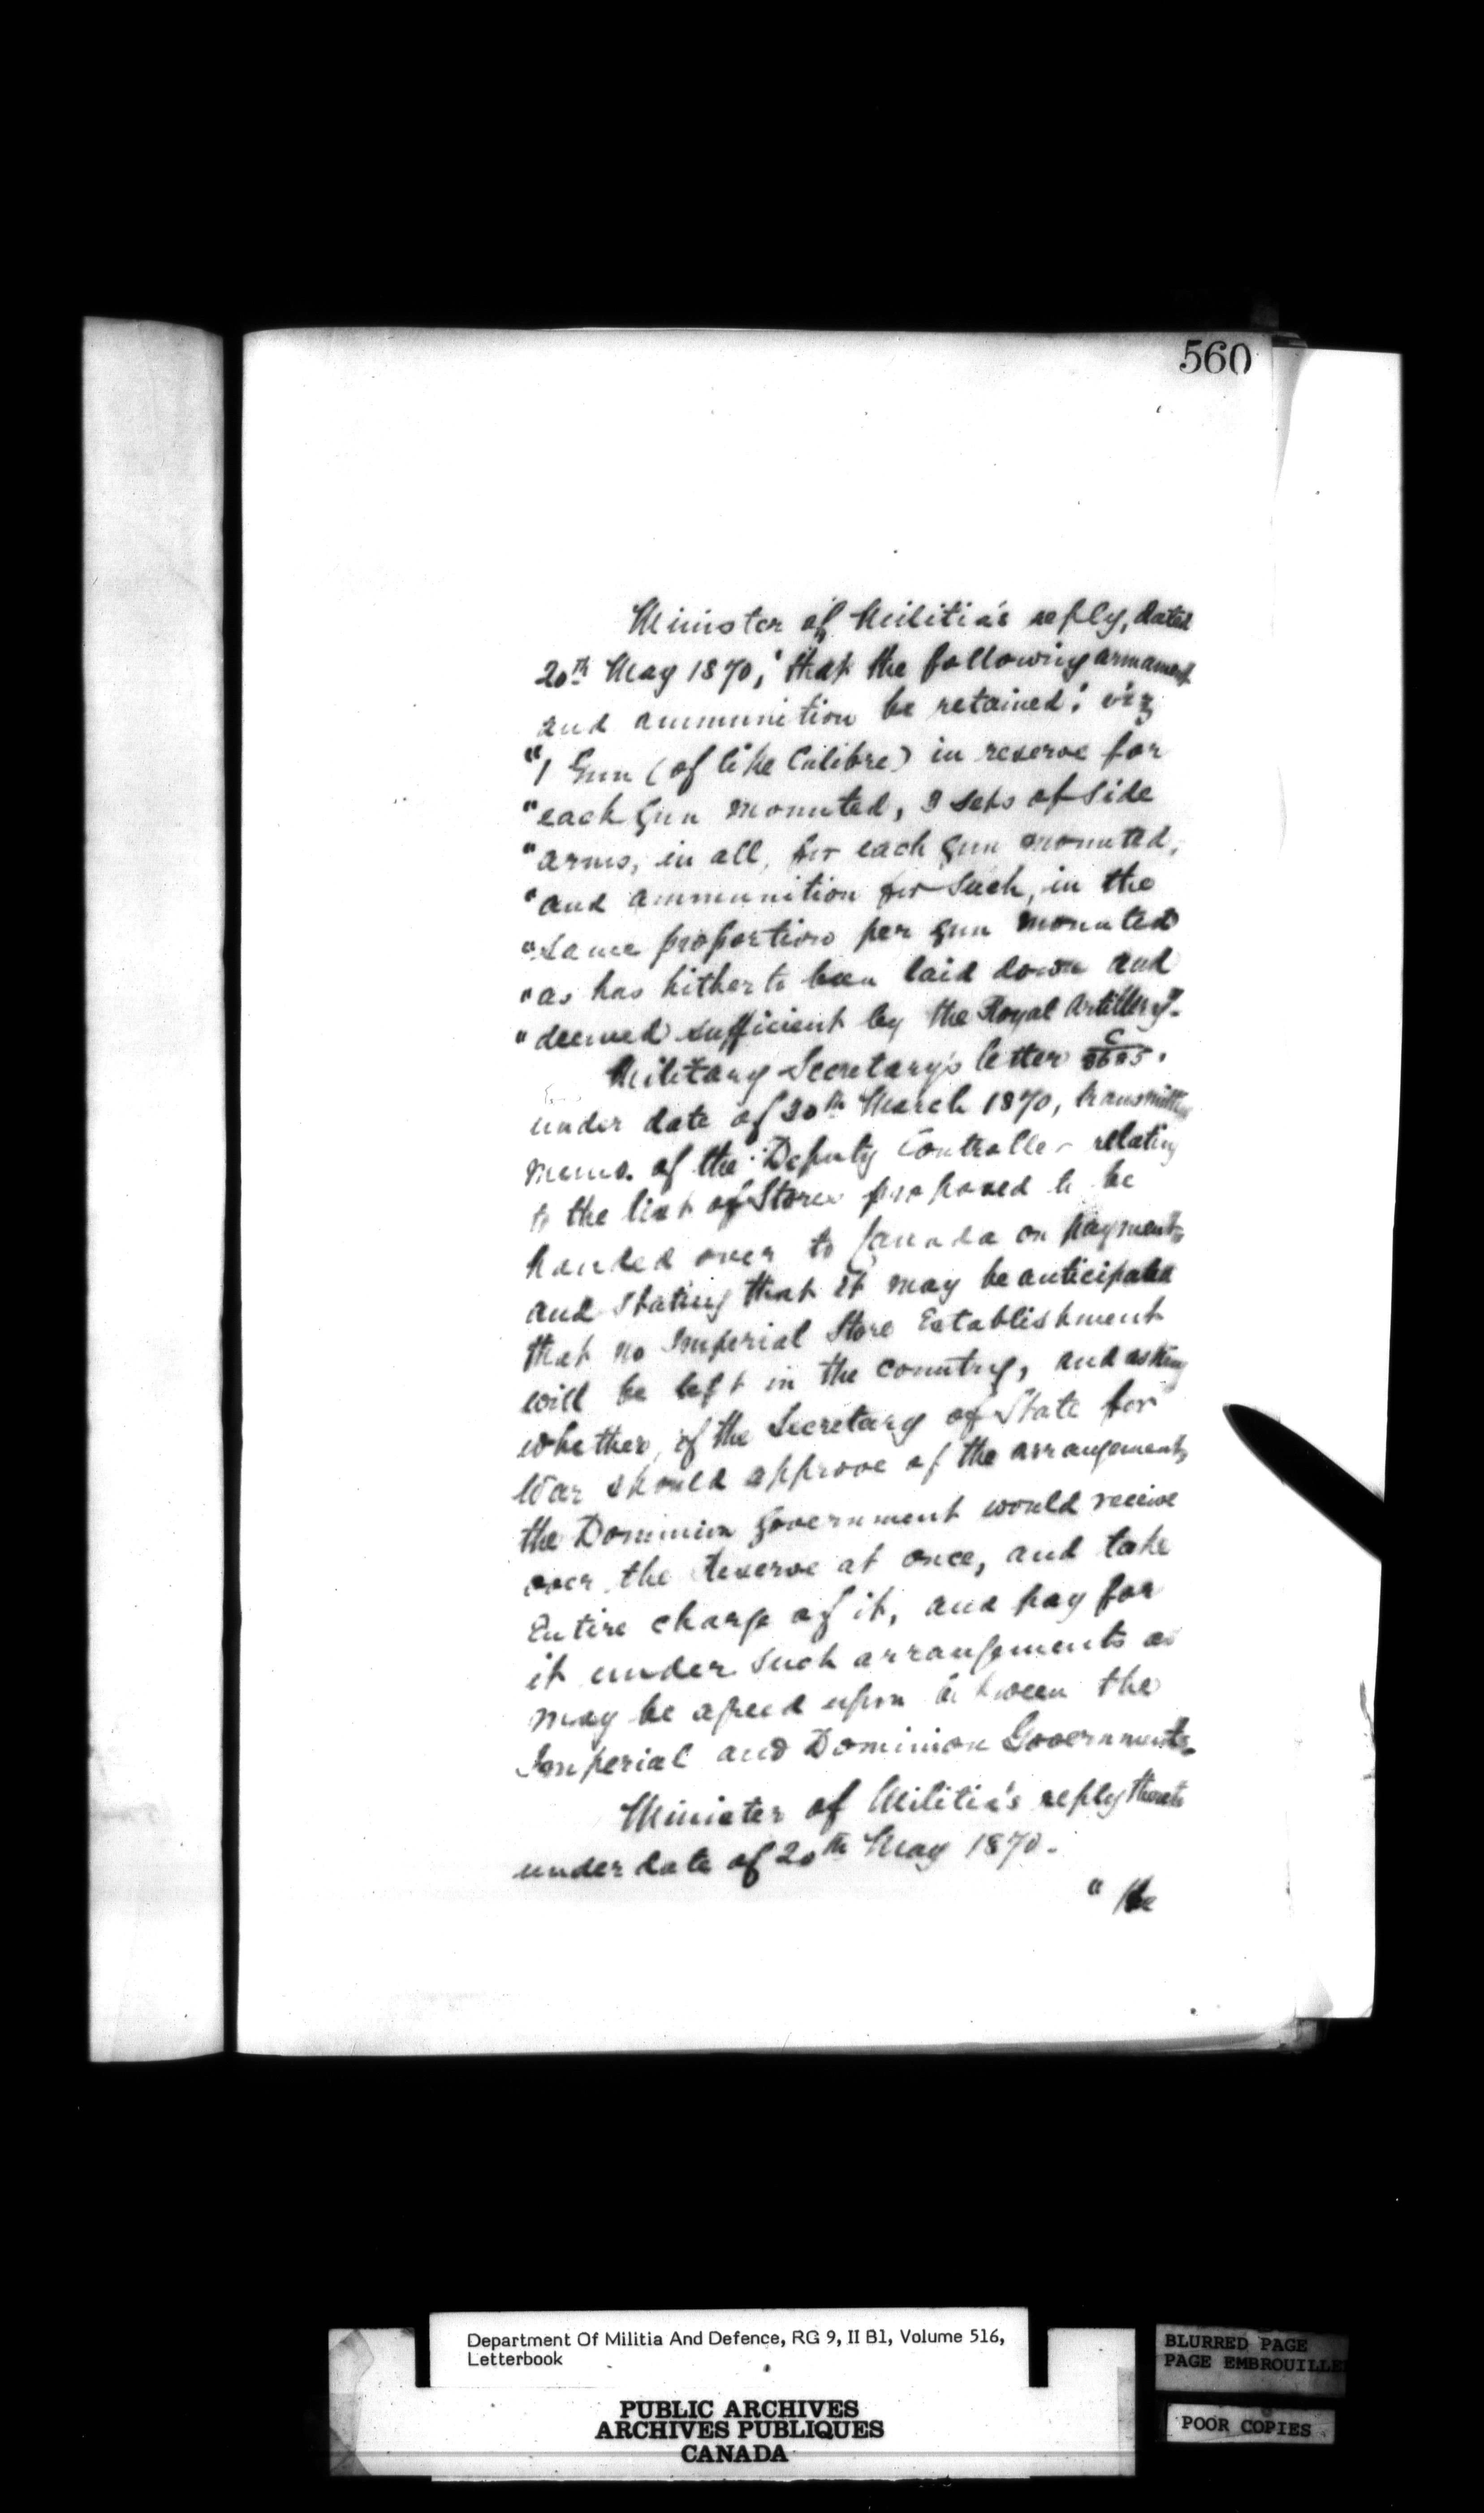 560
Minister of Militia's reply, dated
20th May 1870, "that the following armament
and ammunition be retained: viz
"1 Gun (of like Calibre) in reserve for
"each Gun mounted, 3 sets of side
"arms, in all, for each gun mounted,
"and ammunition for such, in the
"same proportion per gun mounted
"as has hitherto been laid down and
"deemed sufficient by the Royal Artillery".
Military Secretary's letter C
under date of 30th March 1870, transmitting
memo. of the Deputy Controller relating
to the list of Stores proposed to be
handed over to Canada on payment,
and stating that it may be anticipated
that no Imperial Store Establishment
will be left in the country, and asking
whether, if the Secretary of State for
War should approve of the arrangement,
the Dominion Government would receive
over the Reserve at once, and take
Entire charge of it, and pay for
it under such arrangements as
may be agreed upon between the
Imperial and Dominion Governments.
Minister of Militia's reply thereto
under date of 20th May 1870.
"the
Department Of Militia And Defence, RG 9, II B1, Volume 516,
Letterbook
PUBLIC ARCHIVES
ARCHIVES PUBLIQUES
CANADA
BLURRED PAGE
PAGE EMBROUILLE
POOR COPIES